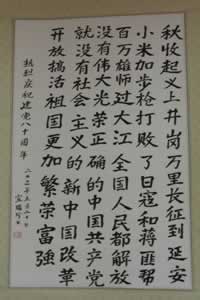 秋收起义上井岗万里长征到延安
小米加步枪打败了日寇和蒋匪帮
百万雄师过大江全国人民都解放
没有伟大光荣正确的中国共产党
就没有社会主义的新中国改革
开放搞活祖国更加繁荣富强
热烈庆祝建党八十周年